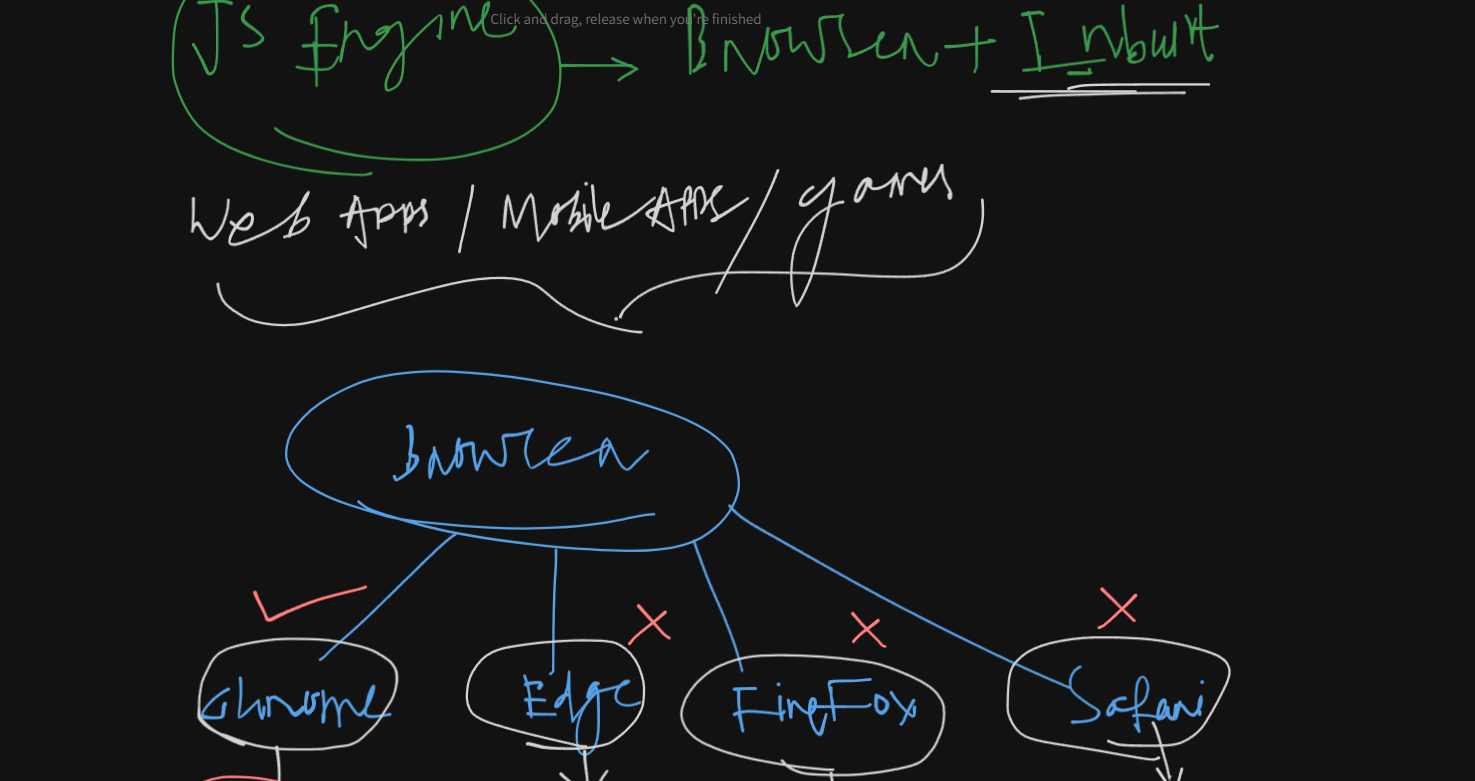 Click and drag, release when you're finished
JS Engine → Browser + Inbuilt
Web Apps / Mobile Apps / games
Browser
Chrome Edge FireFox Safari